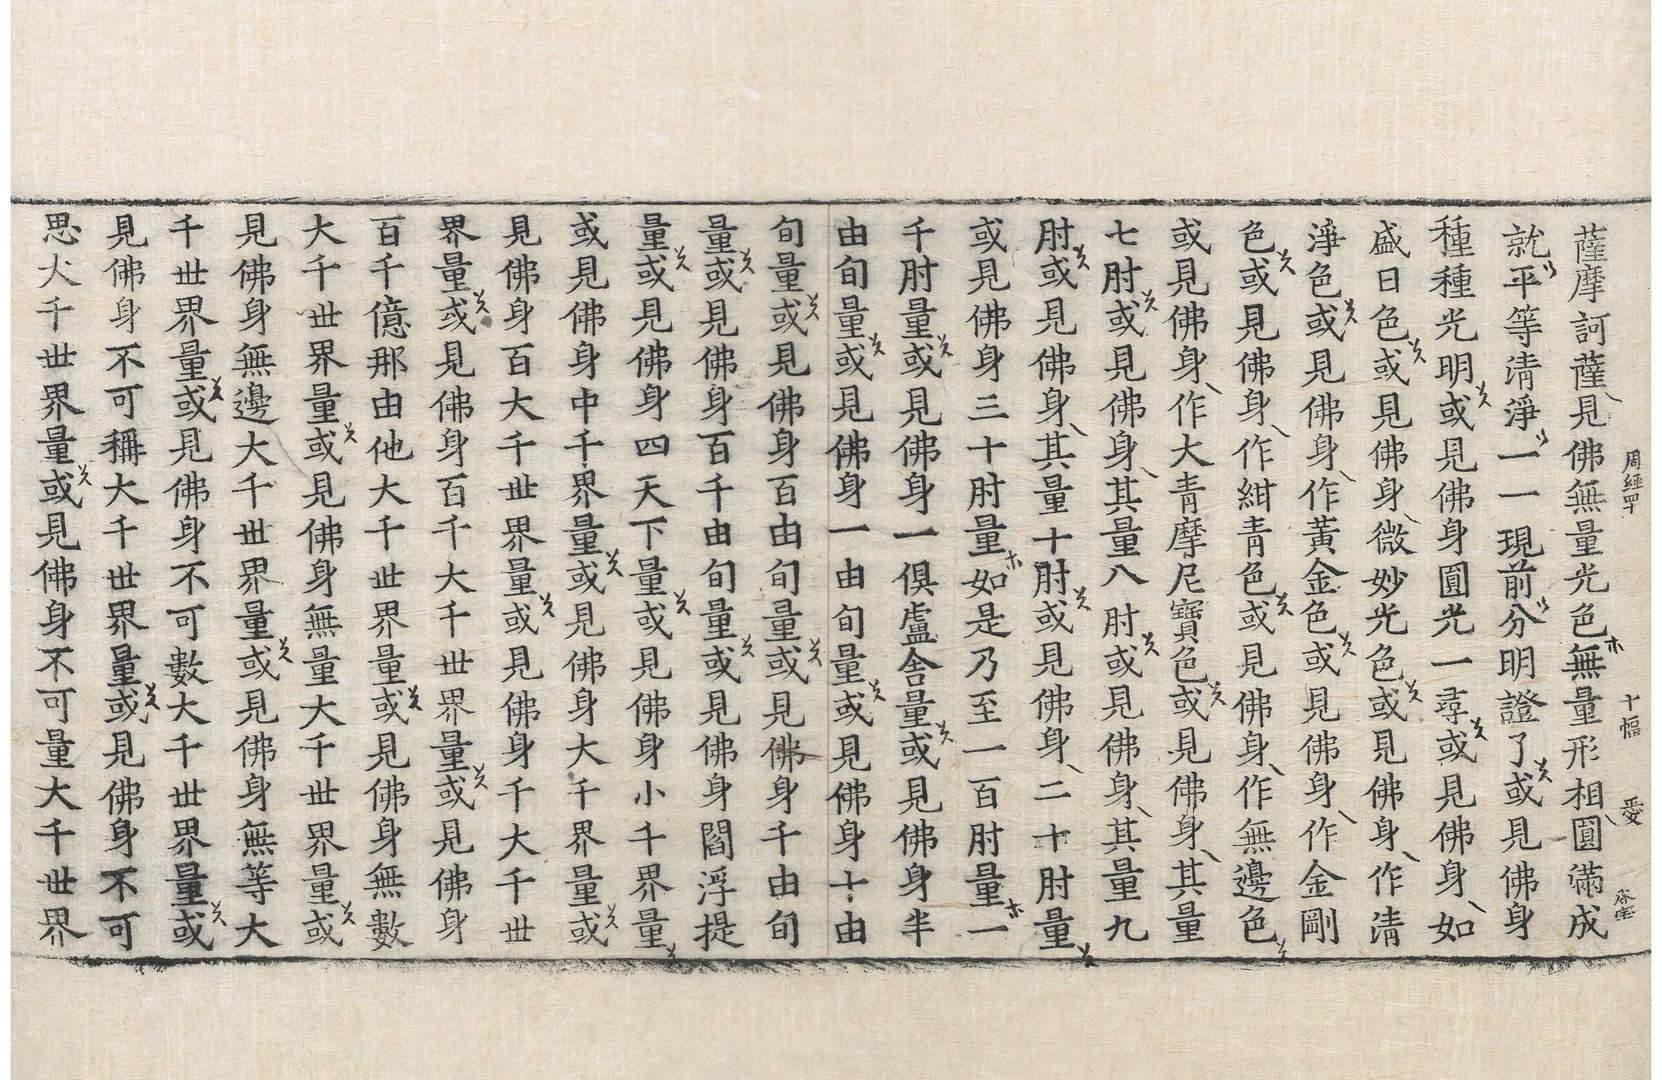 薩摩訶薩見佛無量光色無量形相圓滿成
就平等清淨一一現前分明證了或見佛身
種種光明或見佛身圓光一尋或見佛身如
盛日色或見佛身微妙光色或見佛身作清
淨色或見佛身作黃金色或見佛身作金剛
色或見佛身作紺青色或見佛身作無邊色
或見佛身作大青摩尼寶色或見佛身其量
七肘或見佛身其量八肘或見佛身其量九
肘或見佛身其量十肘或見佛身二十肘量
或見佛身三十肘量如是乃至一百肘量一
千肘量或見佛身一俱盧舍量或見佛身半
由旬量或見佛身一由旬量或見佛身十由
旬量或見佛身百由旬量或見佛身千由旬
量或見佛身百千由旬量或見佛身閻浮提
量或見佛身四天下量或見佛身小千界量
或見佛身中千界量或見佛身大千界量或
見佛身百大千世界量或見佛身千大千世
界量或見佛身百千大千世界量或見佛身
百千億那由他大千世界量或見佛身無數
大千世界量或見佛身無量大千世界量或
見佛身無邊大千世界量或見佛身無等大
千世界量或見佛身不可數大千世界量或
見佛身不可稱大千世界量或見佛身不可
思大千世界量或見佛身不可量大千世界
周經四 十幅